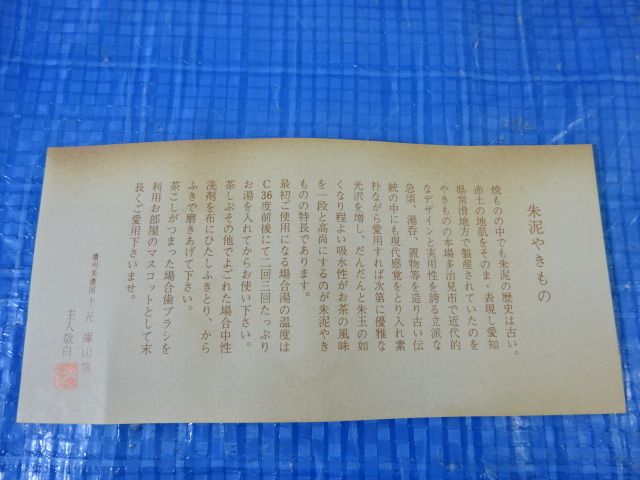 朱泥やきもの
焼ものの中でも朱泥の歴史は古い。
赤土の地肌をそのまゝ表現し愛知
県常滑地方で製産されていたのを
やきものの本場多治見市で近代的
なデザインと実用性を誇る立派な
急須、湯呑、置物等を造り古い伝
統の中にも現代感覚をとり入れ素
朴ながら愛用すれば次第に優雅な
光沢を増し、だんだんと朱玉の如
くなり程よい吸水性がお茶の風味
を一段と高尚にするのが朱泥やき
ものの特長であります。
最初ご使用になる場合湯の温度は
C36度前後にて二回三回たっぷり
お湯を入れてからお使い下さい。
茶しぶその他でよごれた場合中性
洗剤を布にひたしふきとり、から
ふきで磨きあげて下さい。
茶こしがつまった場合歯ブラシを
利用お部屋のマスコットとして末
長くご愛用下さいませ。
濃州美濃国 十二代 庫山窯
主人敬白